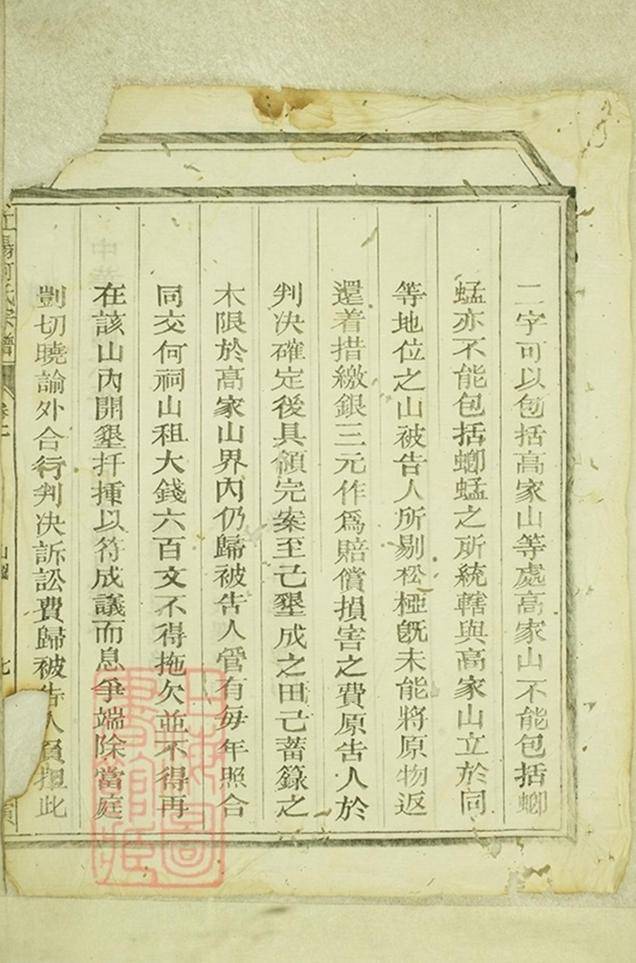 二字可以包括高家山等處高家山不能包括蝍
蜢亦不能包括蝍蜢之所統轄與高家山立於同
等地位之山被告人所剔松椏既未能將原物返
還着措繳銀三元作爲賠償損害之費原告人於
判决確定後具領完案至己墾成之田己蓄籙之
木限於高家山界內仍歸被告人管有每年照合
同交何祠山租大錢六百文不得拖欠並不得再
在該山內開墾扦揷以符成議而息爭端除當庭
剴切曉諭外合行判决訴訟費歸被告人負担此
氏宗譜